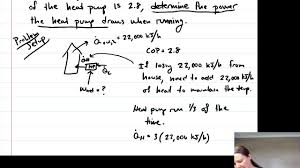 of the heat pump is 2.8, determine the power
the heat pump draws when running.
Problem
Setup
Q̇ = 22,000 kJ/h
COP = 2.8
If losing 22,000 kJ/h from
house, need to add 22,000 kJ/h
of heat to maintain the temp.
Ẇ = ?
Heat pump run 1/3 of the
time.
Q̇H = 3 (22,000 kJ/h)